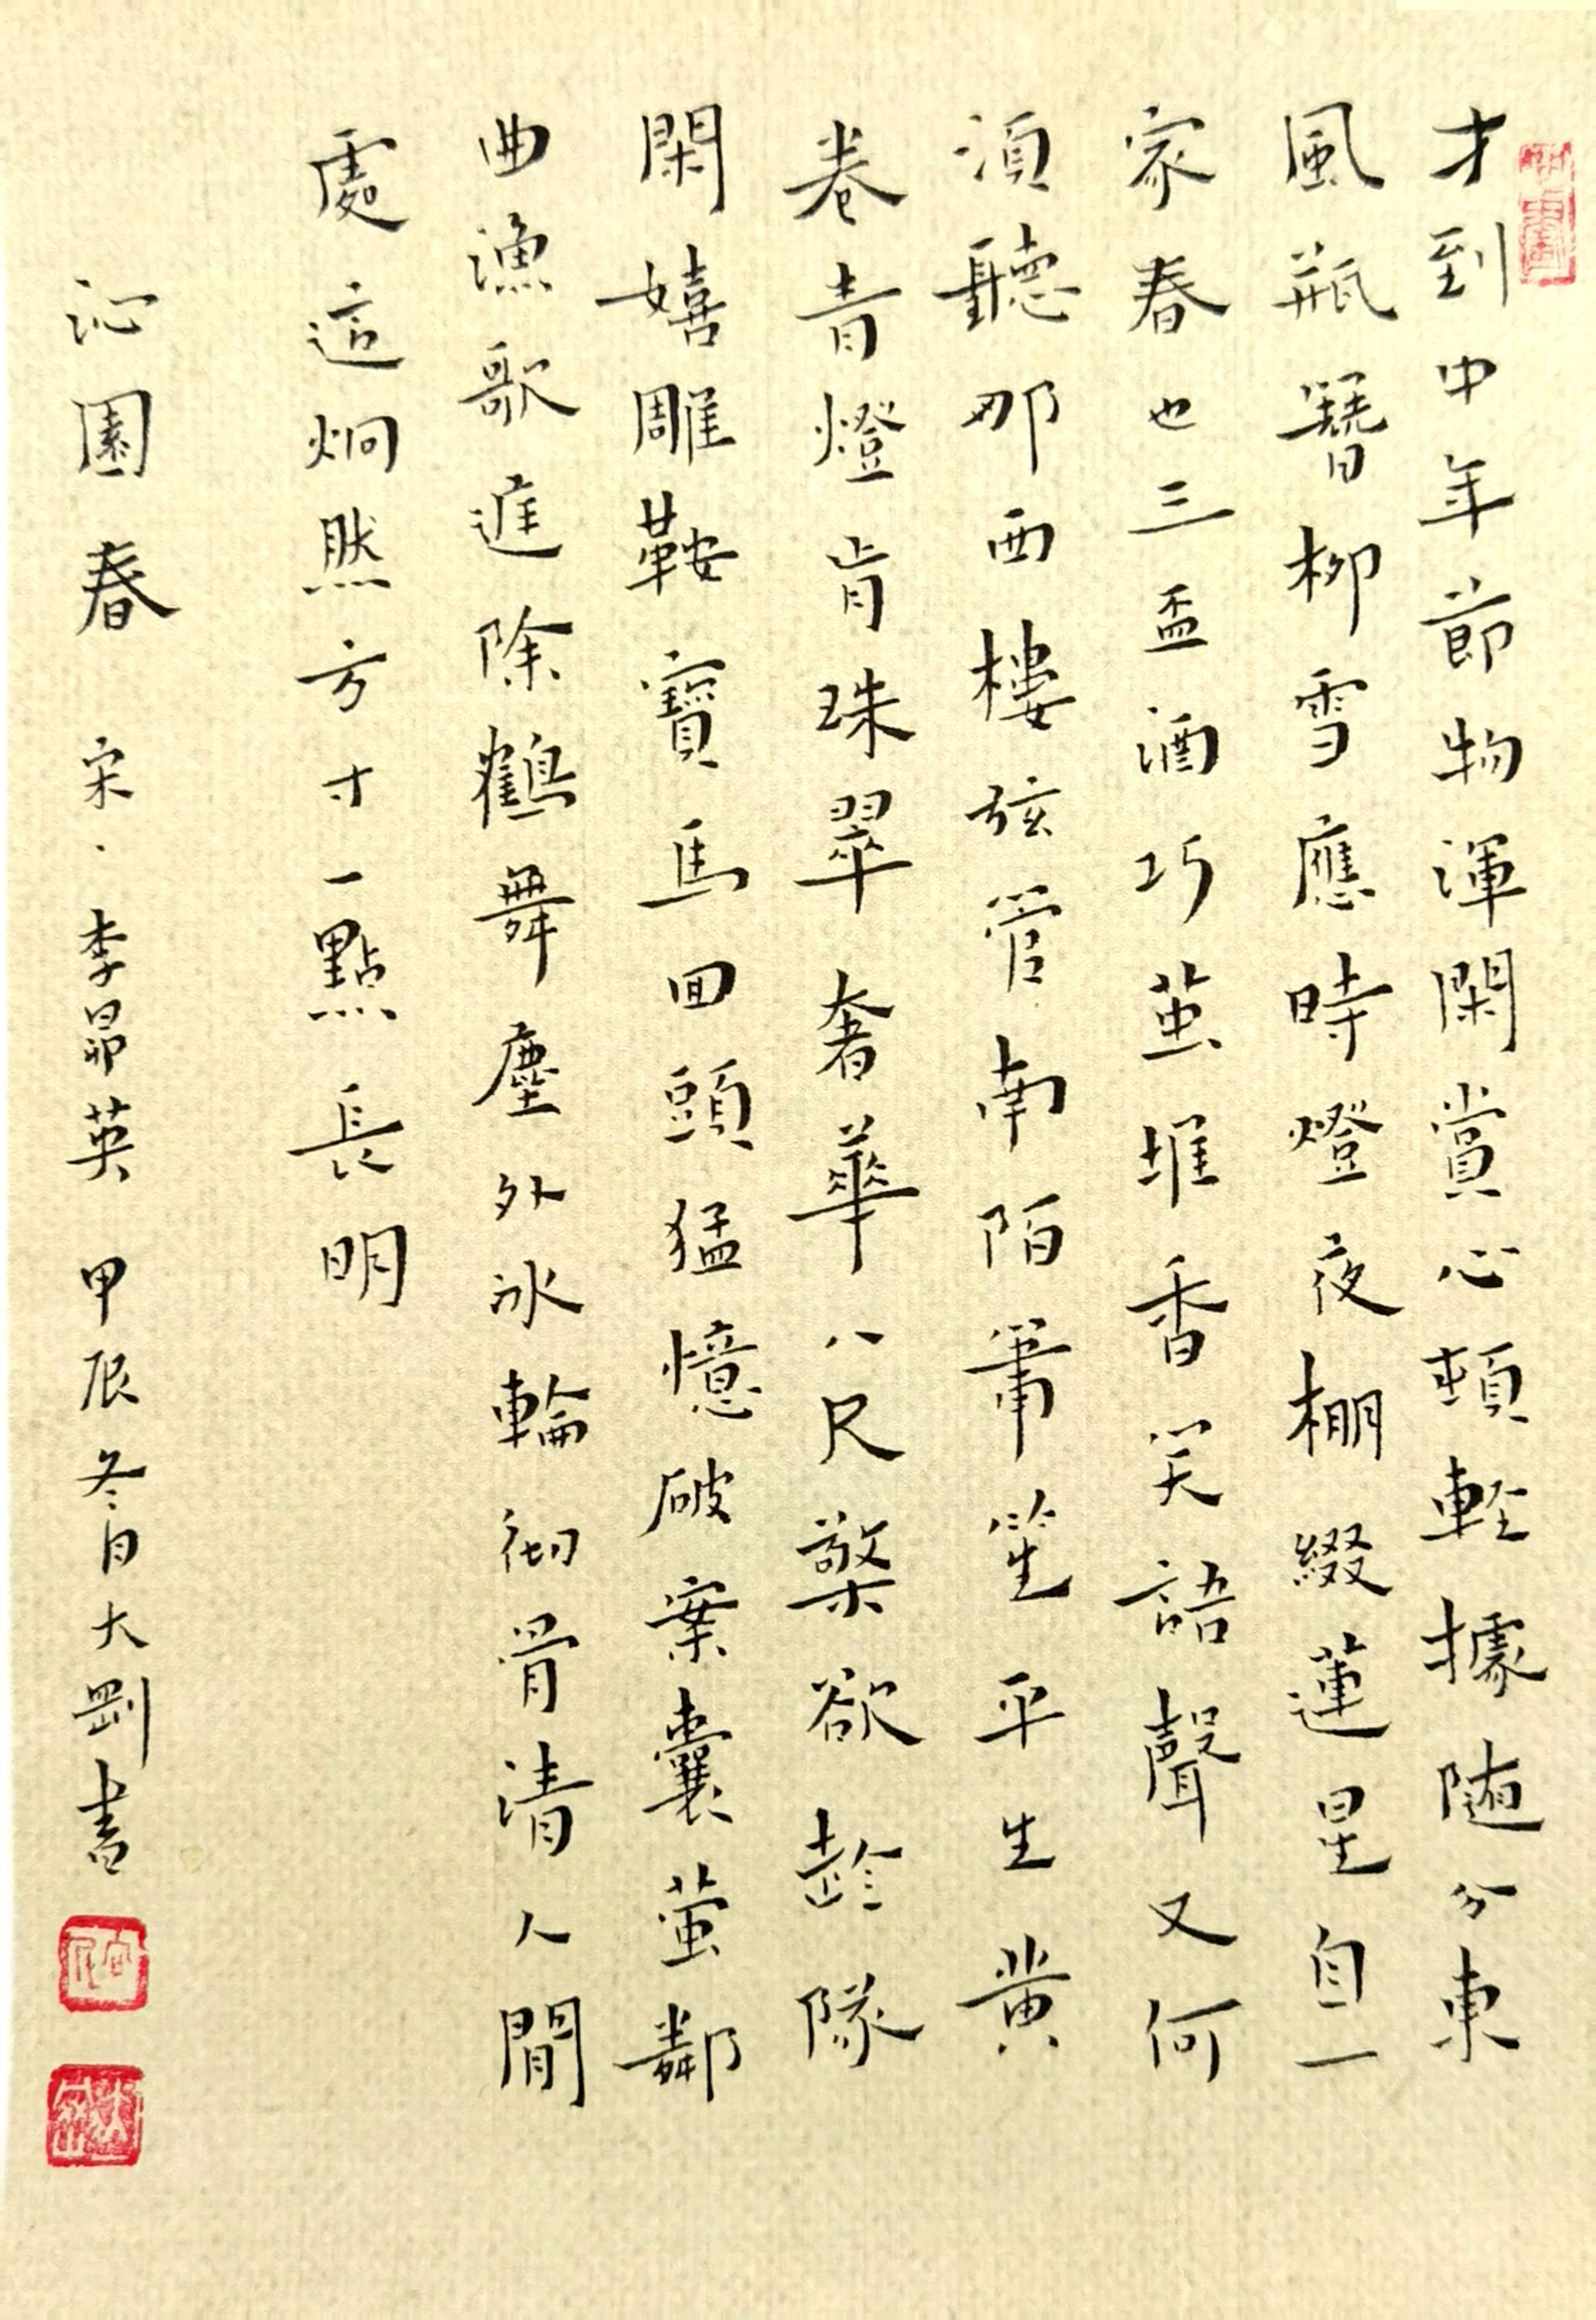 才到中年節物渾閑賞心頓輕據随分東
風瓶簪柳雪應時燈夜棚綴蓮星自一
家春也三盃酒巧茧堆香笑語聲又何
須聽那西樓弦管南陌簫笙平生黄
卷青燈肯珠翠奢華八尺檠欲趁隊
閑嬉雕鞍寶馬回頭猛憶破案囊萤鄰
曲漁歌進除鶴舞塵外冰輪徹骨清人間
處這炯然方寸一點長明
沁園春 宋·李昴英 甲辰冬月大剛書